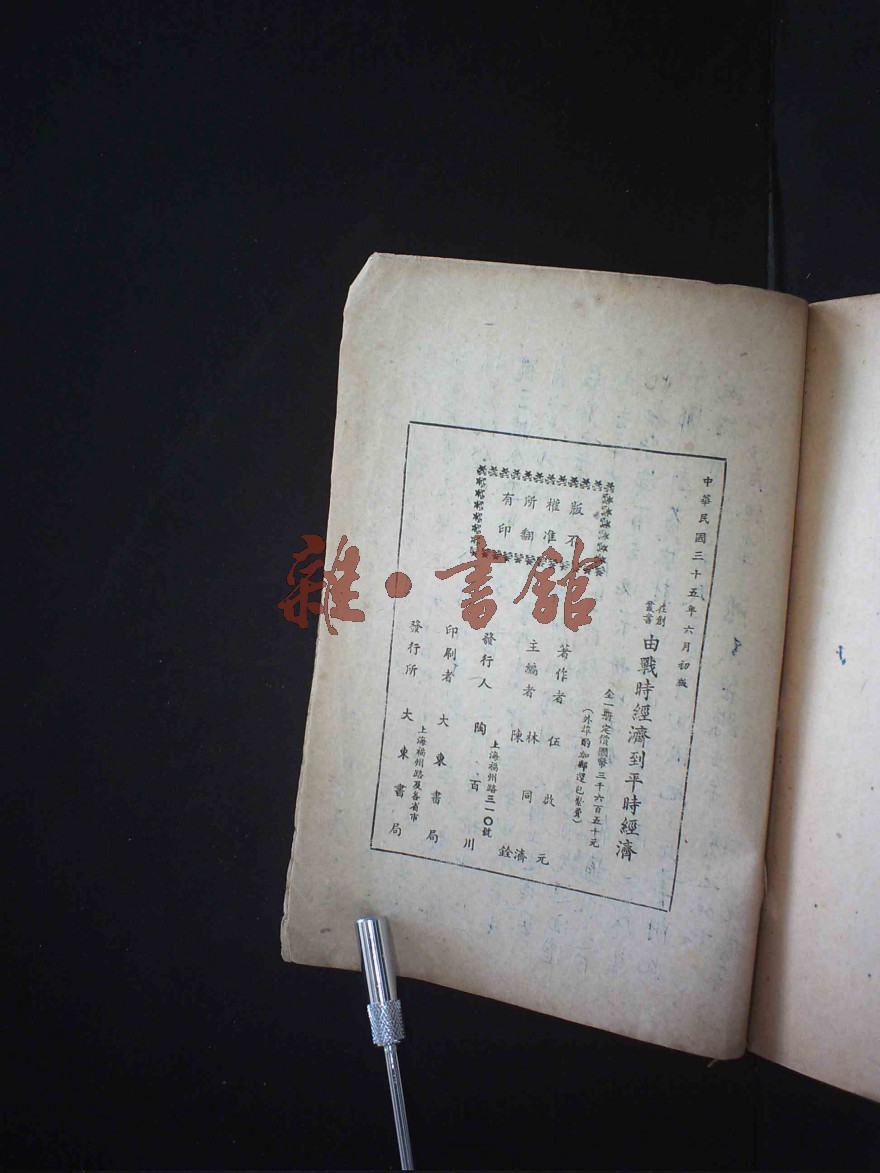 中華民國三十五年六月初版
在創叢書
由戰時經濟到平時經濟
全一冊定價國幣三千六百五十元
(外埠酌加郵運包紮費)
著作者 伍啟元
主編者 林同濟 陳銓
發行人 陶百川
上海福州路三一〇號
印刷者 大東書局
發行所 大東書局
上海福州路及各省市
版權所有
不准翻印
雜·書館